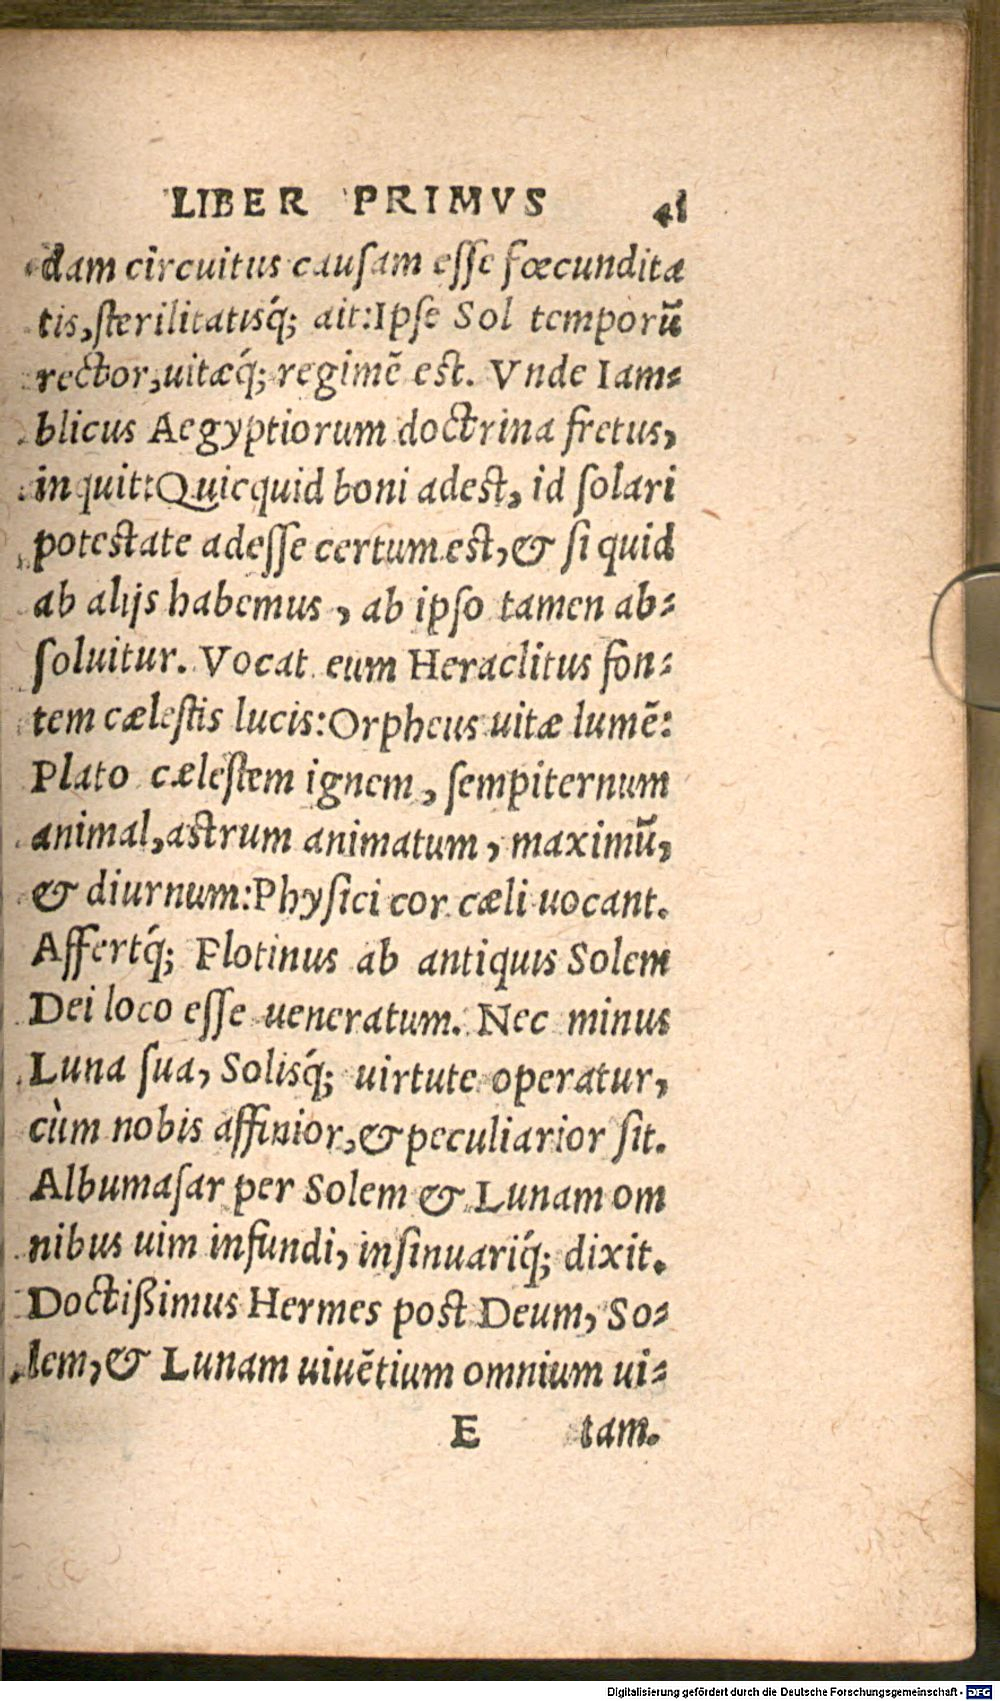 LIBER PRIMVS 41
dam circuitus causam esse fœcundita
tis, sterilitatisq́; ait: Ipse Sol temporū
rector, uitæq́; regimē est. Vnde Iam-
blicus Aegyptiorum doctrina fretus,
inquit: Quicquid boni adest, id solari
potestate adesse certum est, & si quid
ab alijs habemus, ab ipso tamen ab-
soluitur. Vocat eum Heraclitus fon-
tem cælestis lucis: Orpheus uitæ lumē:
Plato cælestem ignem, sempiternum
animal, astrum animatum, maximū,
& diurnum: Physici cor cæli uocant.
Affertq́; Plotinus ab antiquis Solem
Dei loco esse ueneratum. Nec minus
Luna sua, Solisq́; uirtute operatur,
cùm nobis affinior, & peculiarior sit.
Albumasar per Solem & Lunam om
nibus uim infundi, insinuariq́; dixit.
Doctißimus Hermes post Deum, So-
lem, & Lunam uiuētium omnium ui-
E tam.
Digitalisierung gefördert durch die Deutsche Forschungsgemeinschaft - DFG